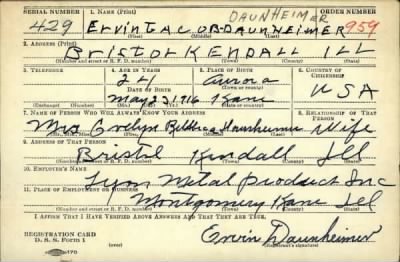 SERIAL NUMBER 1. NAME (Print) ORDER NUMBER
DAUNHEIMER
429 ERVIN JACOB DAUNHEIMER 959
(First) (Middle) (Last)
2. ADDRESS (Print)
BRISTOL KENDALL ILL
(Number and street or R. F. D. number) (Town) (County) (State)
3. TELEPHONE 4. AGE IN YEARS 5. PLACE OF BIRTH 6. COUNTRY OF CITIZENSHIP
24 Aurora
DATE OF BIRTH (Town or county) USA
May 1916 Kane
(Exchange) (Number) (Mo.) (Day) (Yr.) (State or country)
7. NAME OF PERSON WHO WILL ALWAYS KNOW YOUR ADDRESS 8. RELATIONSHIP OF THAT PERSON
Mrs Evelyn Daunheimer Wife
(Mr., Mrs., Miss) (First) (Middle) (Last)
9. ADDRESS OF THAT PERSON
Bristol Kendall Ill
(Number and street or R. F. D. number) (Town) (County) (State)
10. EMPLOYER'S NAME
Lyon Metal Product Inc
11. PLACE OF EMPLOYMENT OR BUSINESS
Montgomery Kane Ill
(Number and street or R. F. D. number) (Town) (County) (State)
I AFFIRM THAT I HAVE VERIFIED ABOVE ANSWERS AND THAT THEY ARE TRUE.
REGISTRATION CARD
D. S. S. Form 1 Ervin Daunheimer
(Registrant's signature)